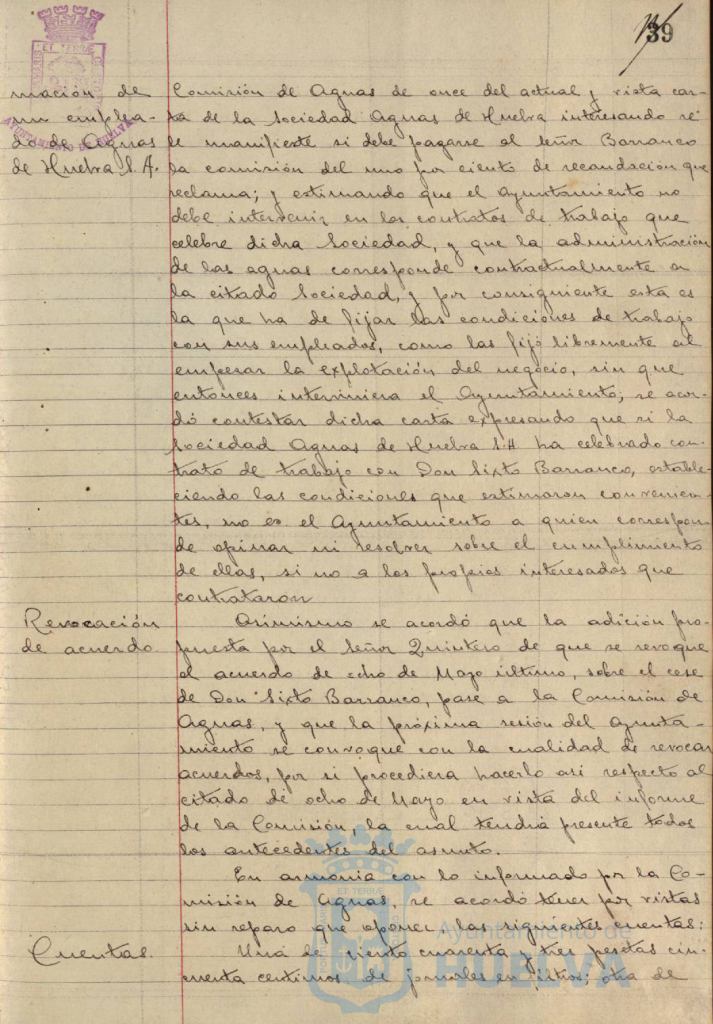 139
mación de
un emplea-
do de Aguas
de Huelva S.A.
Comisión de Aguas de once del actual y vista car-
ta de la Sociedad Aguas de Huelva interesando se
le manifieste si debe pagarse al Señor Barranco
la comisión del uno por ciento de recaudación que
reclama; y estimando que el Ayuntamiento no
debe intervenir en los contratos de trabajo que
celebre dicha Sociedad, y que la administración
de las aguas corresponde contractualmente a
la citada Sociedad, y por consiguiente esta es
la que ha de fijar las condiciones de trabajo
con sus empleados, como las fijó libremente al
empesar la explotación del negocio, sin que
entonces interviniera el Ayuntamiento; se acor-
dó contestar dicha carta expresando que si la
Sociedad Aguas de Huelva S.A ha celebrado con-
trato de trabajo con Don Sixto Barranco, estable-
ciendo las condiciones que estimaron convenien-
tes, no es el Ayuntamiento a quien correspon-
de opinar ni resolver sobre el cumplimiento
de ellas, si no a los propios interesados que
contrataron
Revocación
de acuerdo.
Asimismo se acordó que la adición pro-
puesta por el Señor Quintero de que se revoque
el acuerdo de ocho de Mayo último, sobre el cese
de Don Sixto Barranco, pase a la Comisión de
Aguas, y que la próxima sesión del Ayunta-
miento se convoque con la cualidad de revocar
acuerdos, por si procediera hacerlo asi respecto al
citado de ocho de Mayo en vista del informe
de la Comisión, la cual tendrá presente todos
los antecedentes del asunto.
En armonia con lo informado por la Co-
misión de Aguas, se acordó tener por vistas
sin reparo que oponer las siguientes cuentas:
Cuentas.
Una de ciento cuarenta y tres pesetas cin-
cuenta centimos de jornales en filtros; otra de
AYUNTAMIENTO DE HUELVA
ET TERRÆ
Ayuntamiento de
HUELVA